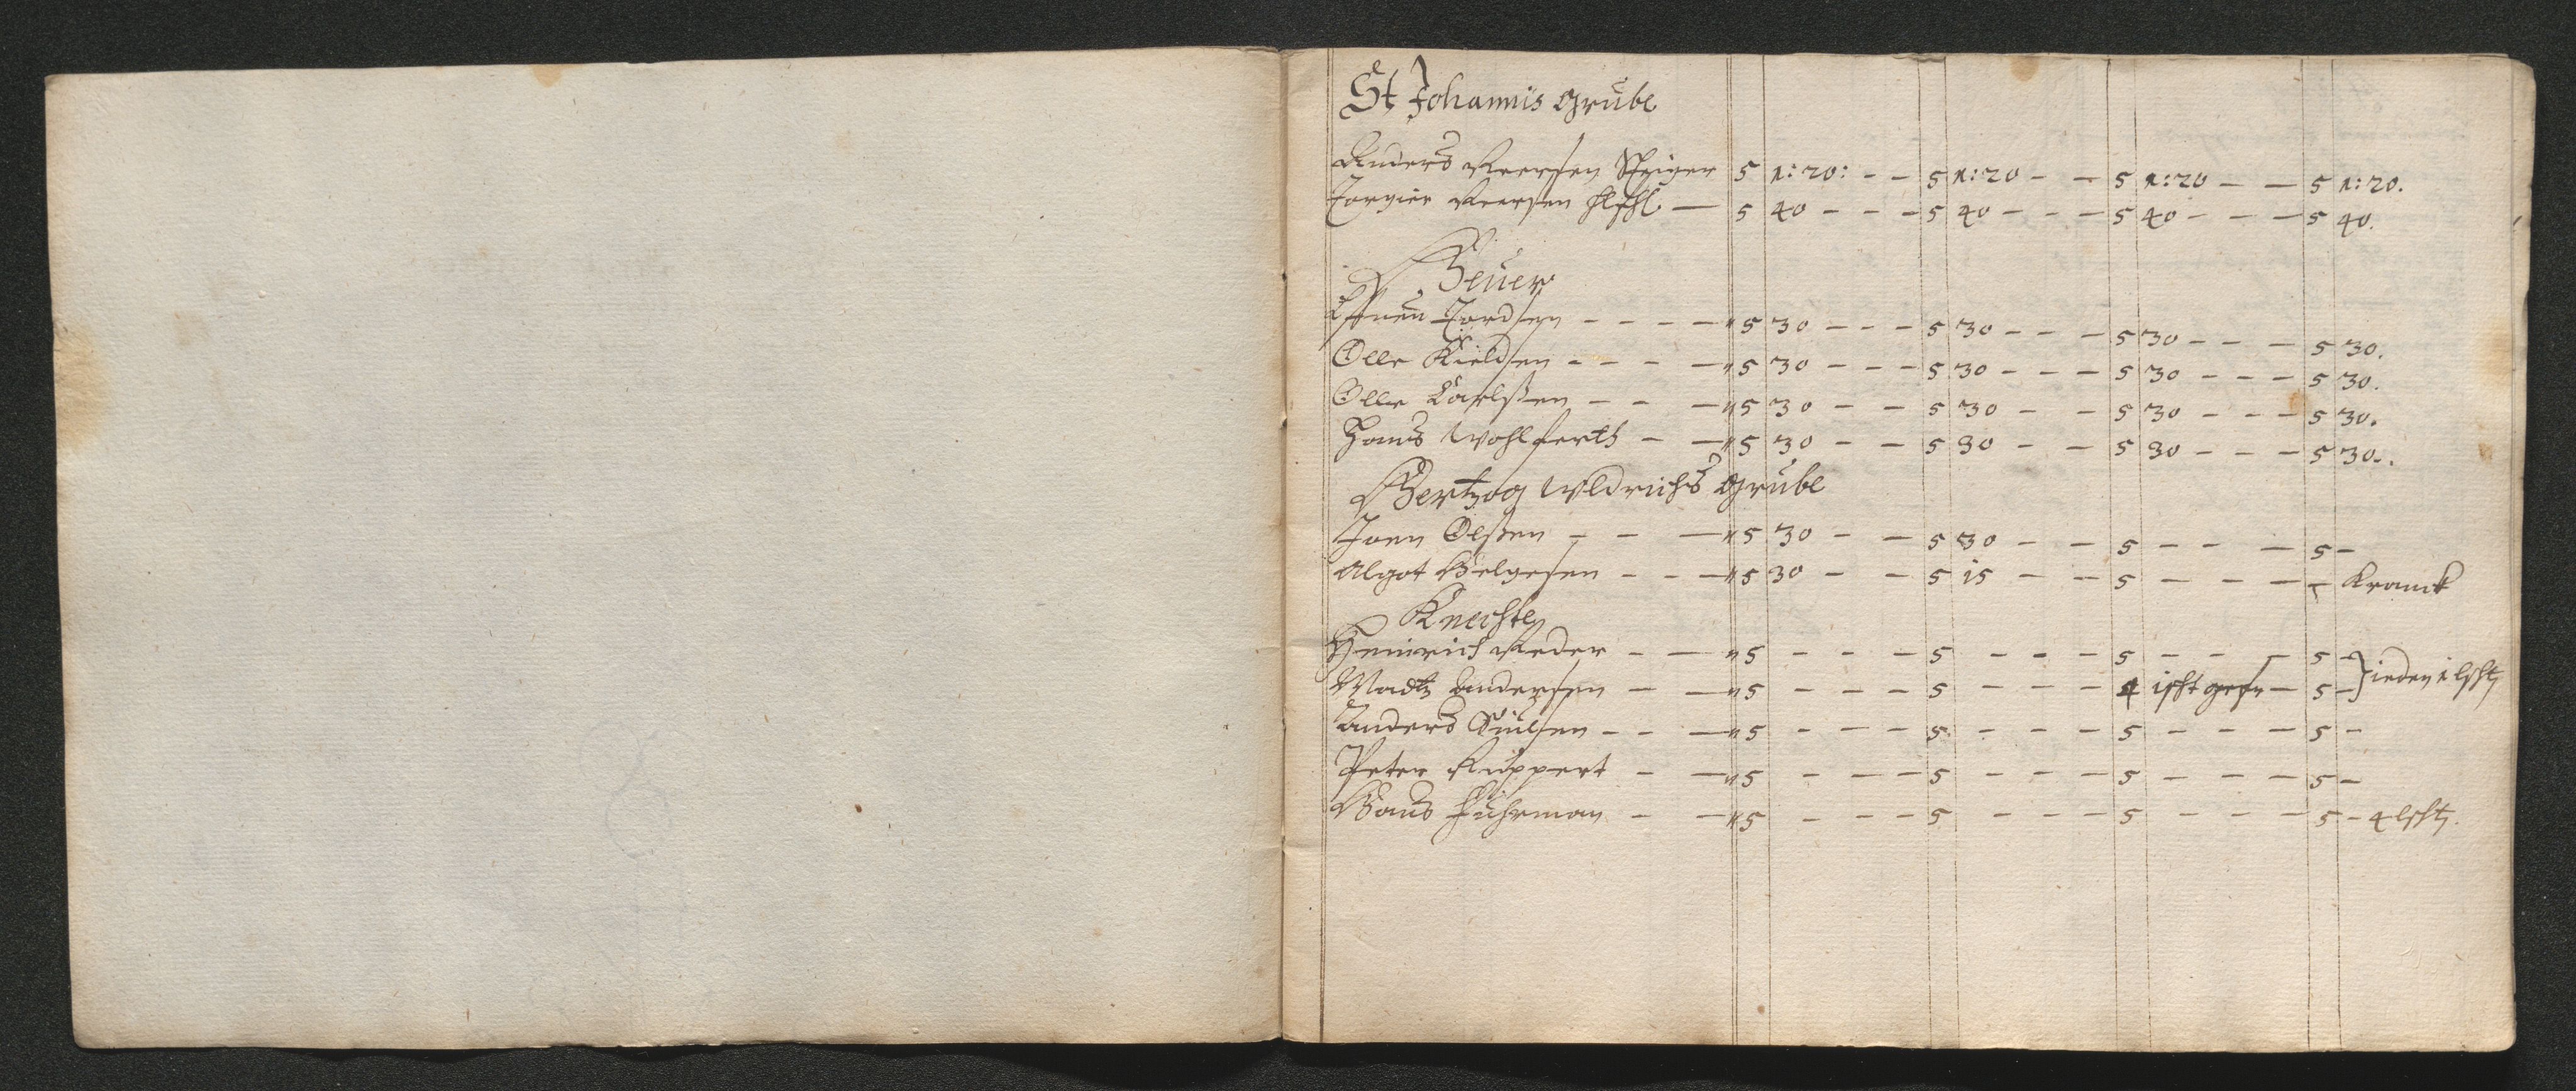 St Johannis Grube
Anders Peersen Steiger 5 1:20: - - 5 1:20 - - 5 1:20 - - 5 1:20.
Torgier Peersen — 5 40 - - - 5 40 - - - 5 40 - - - 5 40.
Heüer
Tordsen - - - - " 5 30 - - - 5 30 - - - 5 30 - - - 5 30.
Olle Kieldsen - - - - " 5 30 - - - 5 30 - - - 5 30 - - - 5 30.
Olle Carlßen - - - " 5 30 - - 5 30 - - 5 30 - - - 5 30.
Hans Wohlferth - - " 5 30 - - 5 30 - - 5 30 - - - 5 30.
Hertzog Uldrichs Grube
Joen Olßen - - - " 5 30 - - 5 30 - - 5 - - - 5 -
Algot Helgesen - - - " 5 30 - - 5 15 - - 5 - - - - Kranck
Knechte
Heinrich Reder - - " 5 - - - 5 - - - 5 - - - 5 -
Madtz Andersen - - " 5 - - - 5 - - - 4 - 5 - } ieden 1
Anders - - - " 5 - - - 5 - - - 5 - - - 5 -
Peter Ruppert - - " 5 - - - 5 - - - 5 - - - 5 -
Hans Fuhrman - - " 5 - - - 5 - - - 5 - - - 5 - 4